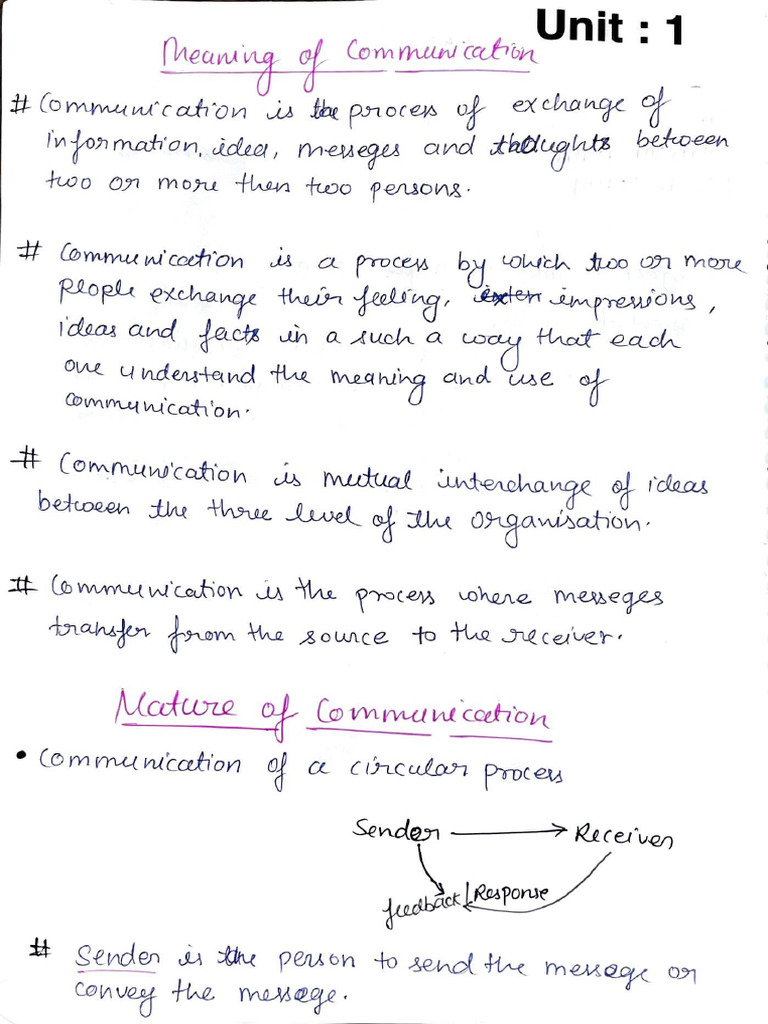 Unit : 1
Meaning of Communication
# Communication is the process of exchange of
information, idea, messeges and thoughts between
two or more then two persons.
# Communication is a process by which two or more
people exchange their feeling, impressions,
ideas and facts in a such a way that each
one understand the meaning and use of
communication.
# Communication is mutual interchange of ideas
between the three level of the organisation.
# Communication is the process where messeges
transfer from the source to the receiver.
Nature of Communication
• Communication of a circular process
Sender → Receiver
feedback/Response
# Sender is the person to send the message or
convey the message.